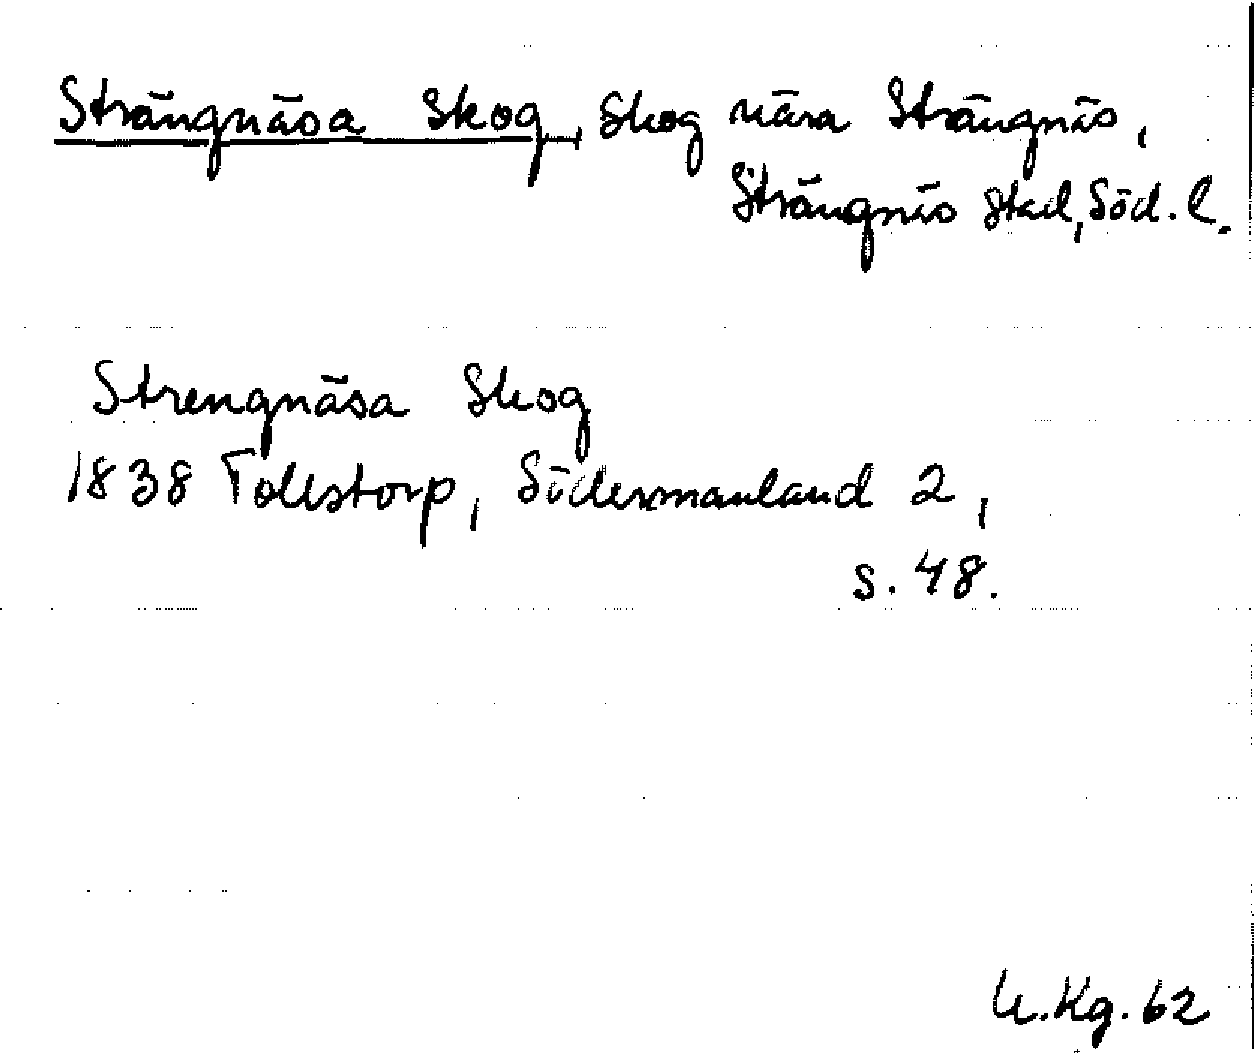 Strängnäsa Skog, Skog nära Strängnäs,
Strängnäs stad, Söd. l.
Strengnäsa Skog
1838 Tollstorp, Södermanland 2,
s. 48.
U.Kg.62